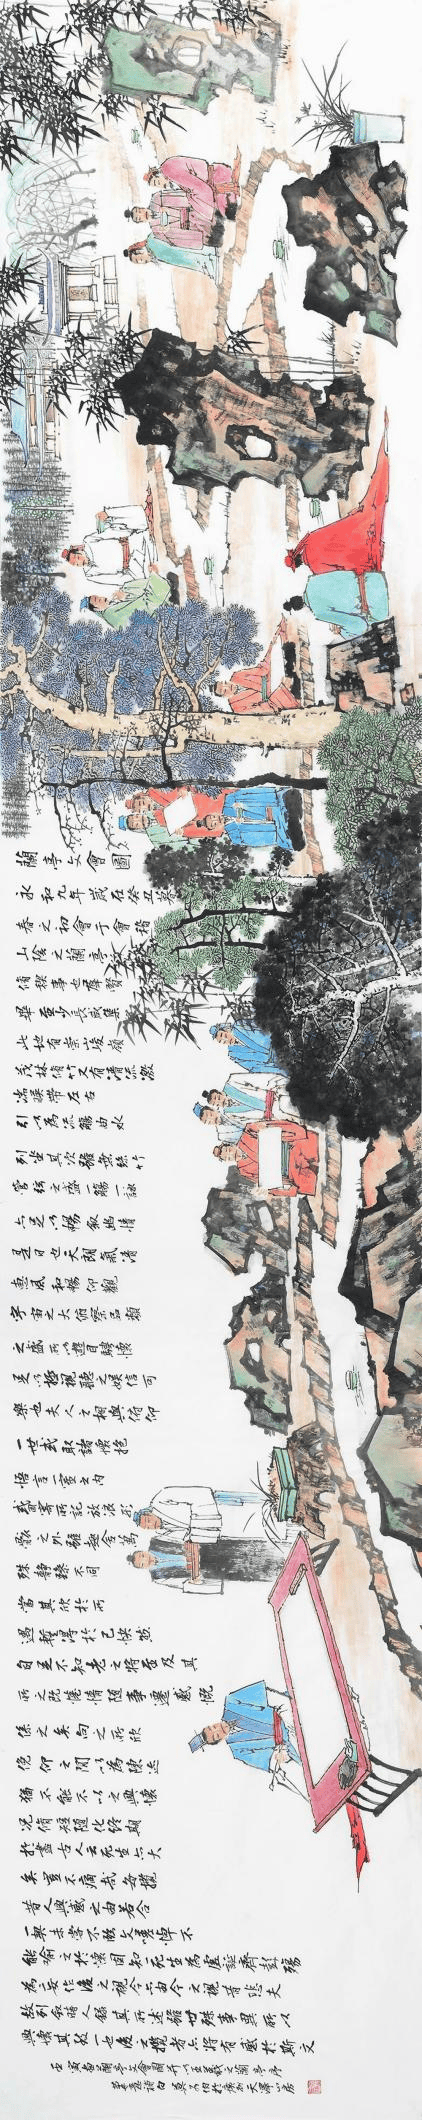 蘭亭文會圖
永和九年歲在癸丑暮
春之初會于會稽
山陰之蘭亭
脩稧事也群賢
畢至少長咸集
此地有崇山峻領
茂林脩竹又有清流激
湍暎帶左右
引以為流觴曲水
列坐其次雖無絲竹
管弦之盛一觴一詠
亦足以暢敘幽情
是日也天朗氣清
惠風和暢仰觀
宇宙之大俯察品類
之盛所以遊目騁懷
足以極視聽之娛信可
樂也夫人之相與俯仰
一世或取諸懷抱
悟言一室之內
或因寄所託放浪形
骸之外雖趣舍萬
殊靜躁不同
當其欣於所
遇暫得於己快然
自足不知老之將至及其
所之既惓情隨事遷感慨
係之矣向之所欣
俛仰之間以為陳迹
猶不能不以之興懷
況脩短隨化終期
於盡古人云死生亦大
矣豈不痛哉每攬
昔人興感之由若合
一契未嘗不臨文嗟悼不
能喻之於懷固知一死生為虛誕齊彭殤
為妄作後之視今亦由今之視昔悲夫
故列敘時人錄其所述雖世殊事異所以
興懷其致一也後之攬者亦將有感於斯文
壬寅春蘭亭文會圖并以王羲之蘭亭序
天澤山房